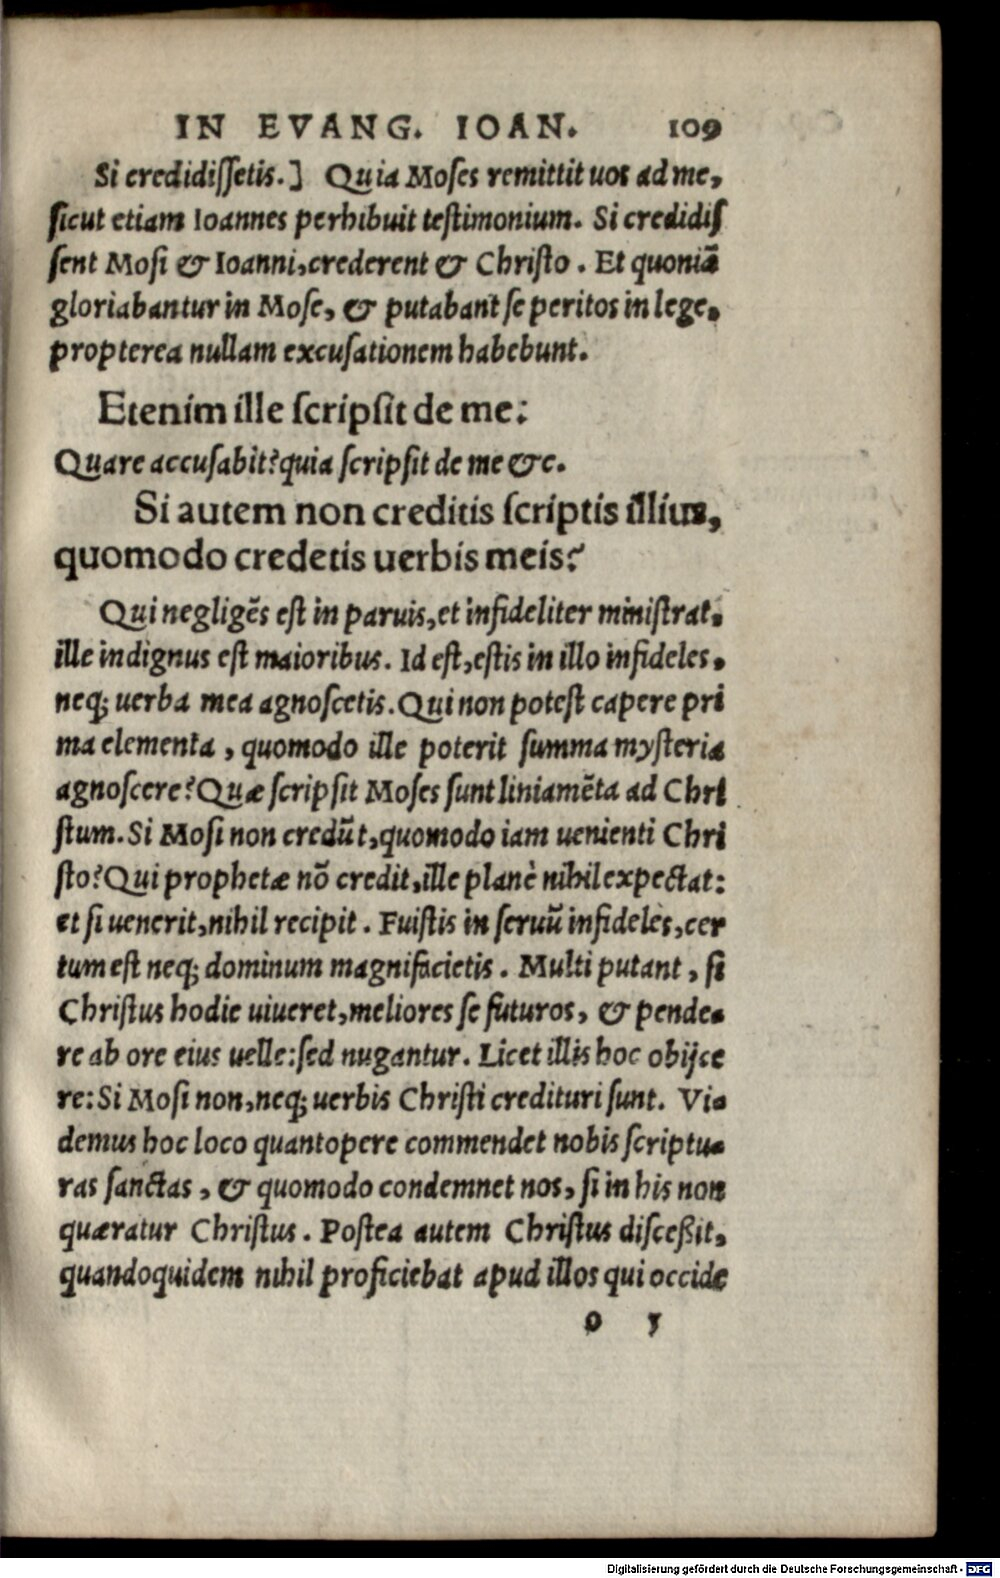 IN EVANG. IOAN. 109
Si credidissetis.] Quia Moses remittit uos ad me,
sicut etiam Ioannes perhibuit testimonium. Si credidis
sent Mosi & Ioanni, crederent & Christo. Et quoniā
gloriabantur in Mose, & putabant se peritos in lege,
propterea nullam excusationem habebunt.
Etenim ille scripsit de me:
Quare accusabit? quia scripsit de me &c.
Si autem non creditis scriptis illius,
quomodo credetis uerbis meis?
Qui negligēs est in paruis, et infideliter ministrat,
ille indignus est maioribus. Id est, estis in illo infideles,
neq; uerba mea agnoscetis. Qui non potest capere pri
ma elementa, quomodo ille poterit summa mysteria
agnoscere? Quæ scripsit Moses sunt liniamēta ad Chri
stum. Si Mosi non credūt, quomodo iam uenienti Chri
sto? Qui prophetæ nō credit, ille planè nihil expectat:
et si uenerit, nihil recipit. Fuistis in seruū infideles, cer
tum est neq; dominum magnifacietis. Multi putant, si
Christus hodie uiueret, meliores se futuros, & pende-
re ab ore eius uelle: sed nugantur. Licet illis hoc obijce
re: Si Mosi non, neq; uerbis Christi credituri sunt. Vi-
demus hoc loco quantopere commendet nobis scriptu-
ras sanctas, & quomodo condemnet nos, si in his non
quæratur Christus. Postea autem Christus disceßit,
quandoquidem nihil proficiebat apud illos qui occide
o 5
Digitalisierung gefördert durch die Deutsche Forschungsgemeinschaft - DFG